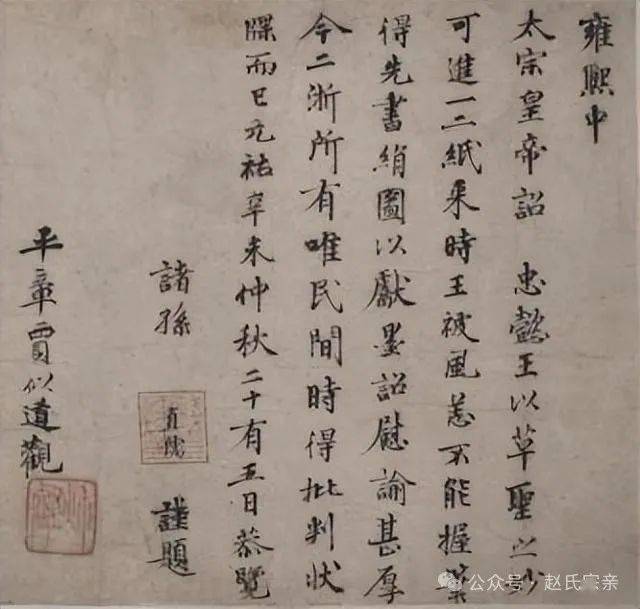 雍熙中
太宗皇帝詔 忠懿王以草聖之妙
可進一二紙來時王被風恙不能握筆
得先書絹圖以獻墨詔慰諭甚厚
今二浙所有唯民間時得批判狀
牒而已元祐辛未仲秋二十有五日恭覽
諸孫
謹題
平章賈似道觀
公众号·赵氏宗亲